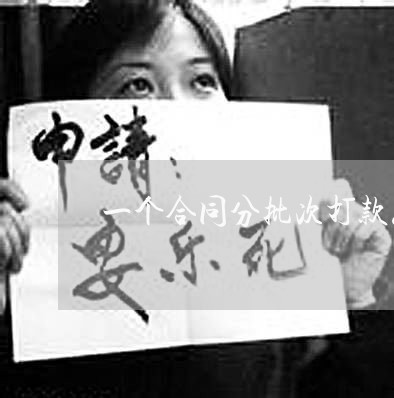 申請:
一个合同分批次打款
要乐死